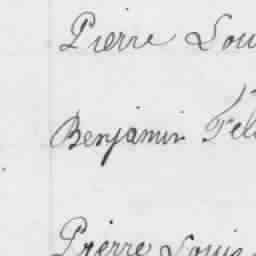 Pierre Lou
Benjamin Fel
Pierre Louis